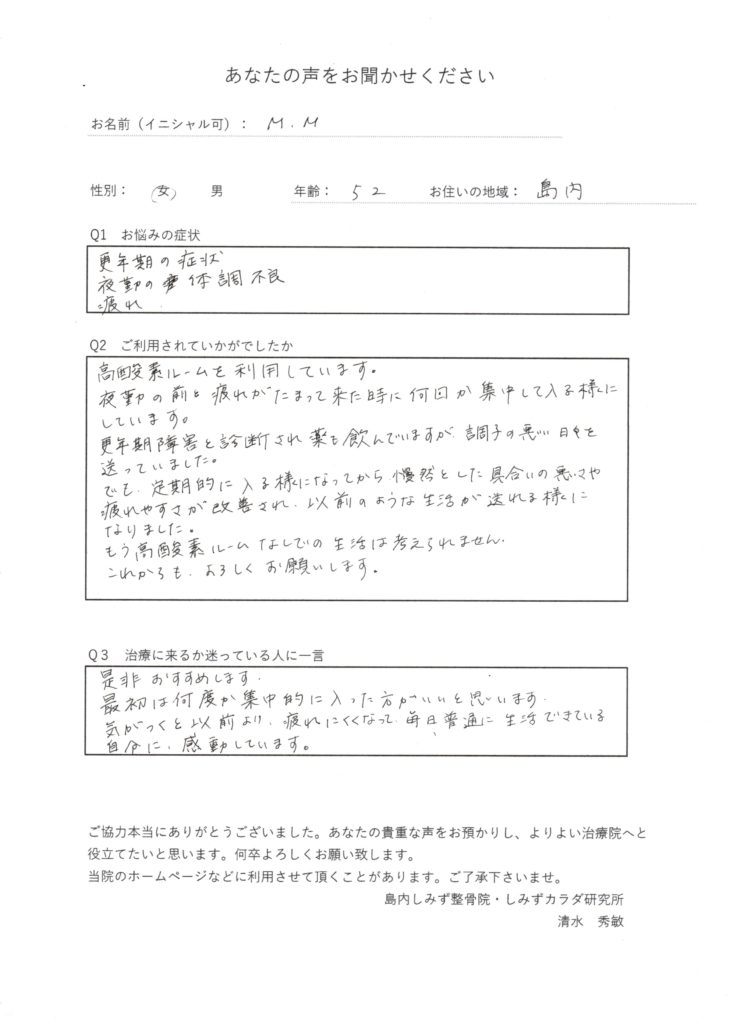 あなたの声をお聞かせください
お名前（イニシャル可）： M.M
性別： 女 男 年齢： 52 お住いの地域： 島内
Q1 お悩みの症状
更年期の症状
夜勤の 体調不良
疲れ
Q2 ご利用されていかがでしたか
高酸素ルームを利用しています。
夜勤の前と疲れがたまって来た時に何回か集中して入る様に
しています。
更年期障害と診断され薬も飲んでいますが、調子の悪い日々を
送っていました。
でも、定期的に入る様になってから、慢然とした具合いの悪さや
疲れやすさが改善され、以前のような生活が送れる様に
なりました。
もう高酸素ルームなしでの生活は考えられません。
これからも、よろしくお願いします。
Q3 治療に来るか迷っている人に一言
是非おすすめします。
最初は何度か集中的に入った方がいいと思います。
気がつくと以前より、疲れにくくなって、毎日普通に生活できている
自分に、感動しています。
ご協力本当にありがとうございました。あなたの貴重な声をお預かりし、よりよい治療院へと
役立てたいと思います。何卒よろしくお願い致します。
当院のホームページなどに利用させて頂くことがあります。ご了承下さいませ。
島内しみず整骨院・しみずカラダ研究所
清水 秀敏